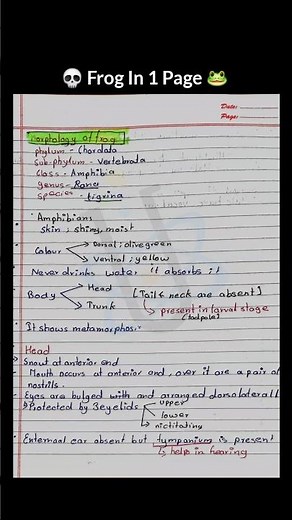 💀 Frog In 1 Page 🐸
Date:
Page:
Morphology of frog
phylum - Chordata
Sub-phylum - Vertebrata
Class - Amphibia
genus - Rana
Species - tigrina
Amphibians
skin ; shiny, moist
Colour → Dorsal ; olive green
→ Ventral ; yellow
Never drinks water it absorbs it
Body → Head
→ Trunk
[Tail & neck are absent]
↳ present in larval stage
(tadpole)
It shows metamorphosis
Head
→ Snout at anterior end
Mouth occurs at anterior end, over it are a pair of
nostrils.
Eyes are bulged with and arranged dorsolaterall
→ Protected by 3 eyelids → upper
→ lower
→ nictitating
External ear absent but tympanium is present
↳ helps in hearing